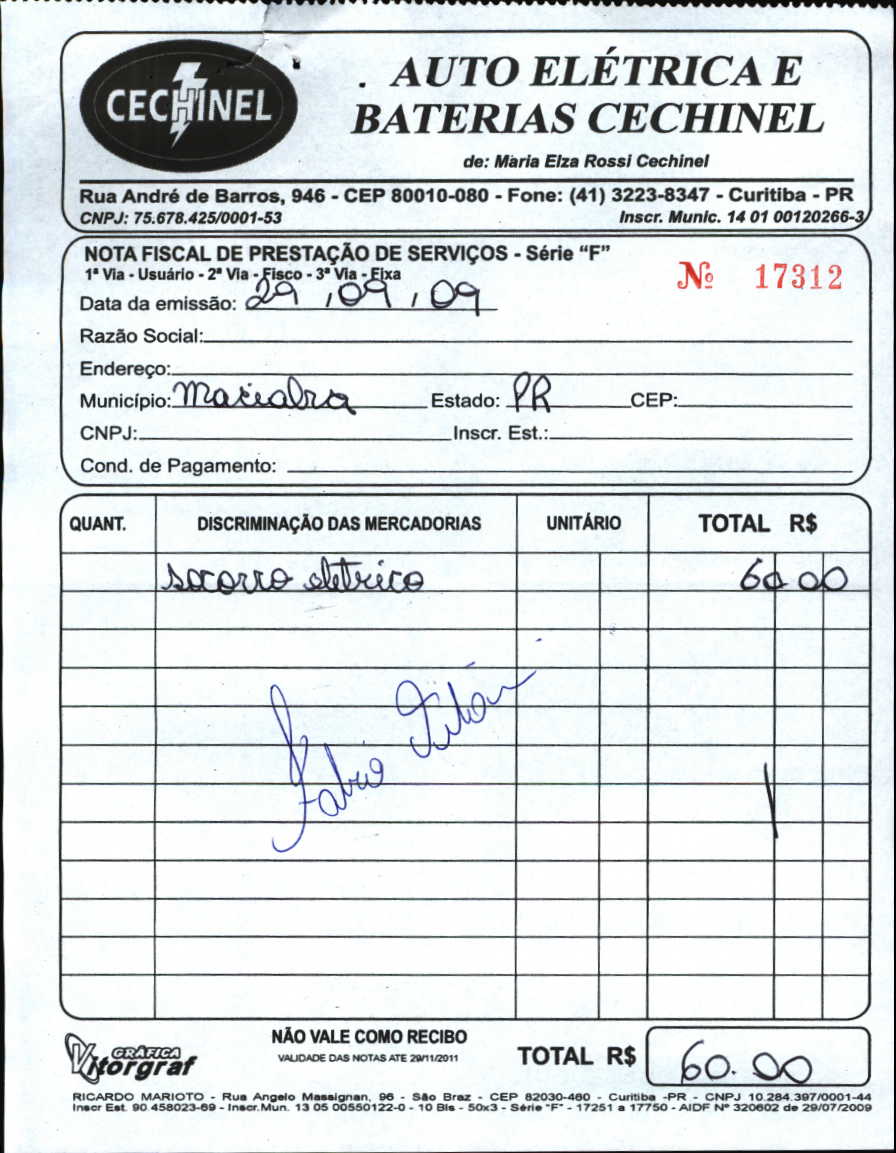 CECHINEL
AUTO ELÉTRICA E
BATERIAS CECHINEL
de: Maria Elza Rossi Cechinel
Rua André de Barros, 946 - CEP 80010-080 - Fone: (41) 3223-8347 - Curitiba - PR
CNPJ: 75.678.425/0001-53 Inscr. Munic. 14 01 00120266-3
NOTA FISCAL DE PRESTAÇÃO DE SERVIÇOS - Série "F"
1ª Via - Usuário - 2ª Via - Fisco - 3ª Via - Fixa
Nº 17312
Data da emissão: 29 / 09 / 09
Razão Social:
Endereço:
Município: Estado: PR CEP:
CNPJ: Inscr. Est.:
Cond. de Pagamento:
QUANT. DISCRIMINAÇÃO DAS MERCADORIAS UNITÁRIO TOTAL R$
socorro eletrico 60 00
Fabio
NÃO VALE COMO RECIBO
VALIDADE DAS NOTAS ATE 29/11/2011
TOTAL R$ 60.00
GRÁFICA
Vitorgraf
RICARDO MARIOTO - Rua Angelo Massignan, 96 - São Braz - CEP 82030-460 - Curitiba -PR - CNPJ 10.284.397/0001-44
Inscr Est. 90.458023-69 - Inscr.Mun. 13 05 00550122-0 - 10 Bls - 50x3 - Série "F" - 17251 a 17750 - AIDF Nº 320602 de 29/07/2009